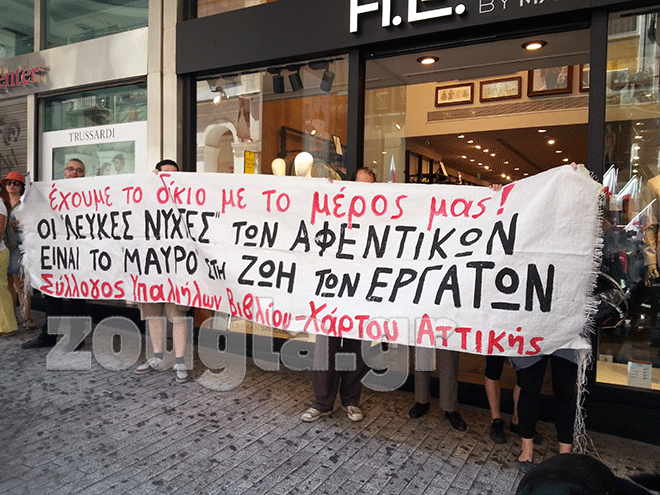 H.E.
BY MA
enter
TRUSSARDI
έχουμε το δίκιο με το μέρος μας!
ΟΙ "ΛΕΥΚΕΣ ΝΥΧΤΕΣ" ΤΩΝ ΑΦΕΝΤΙΚΩΝ
ΕΙΝΑΙ ΤΟ ΜΑΥΡΟ ΣΤΗ ΖΩΗ ΤΩΝ ΕΡΓΑΤΩΝ
Σύλλογος Υπαλλήλων Βιβλίου-Χάρτου Αττικής
zougla.gr